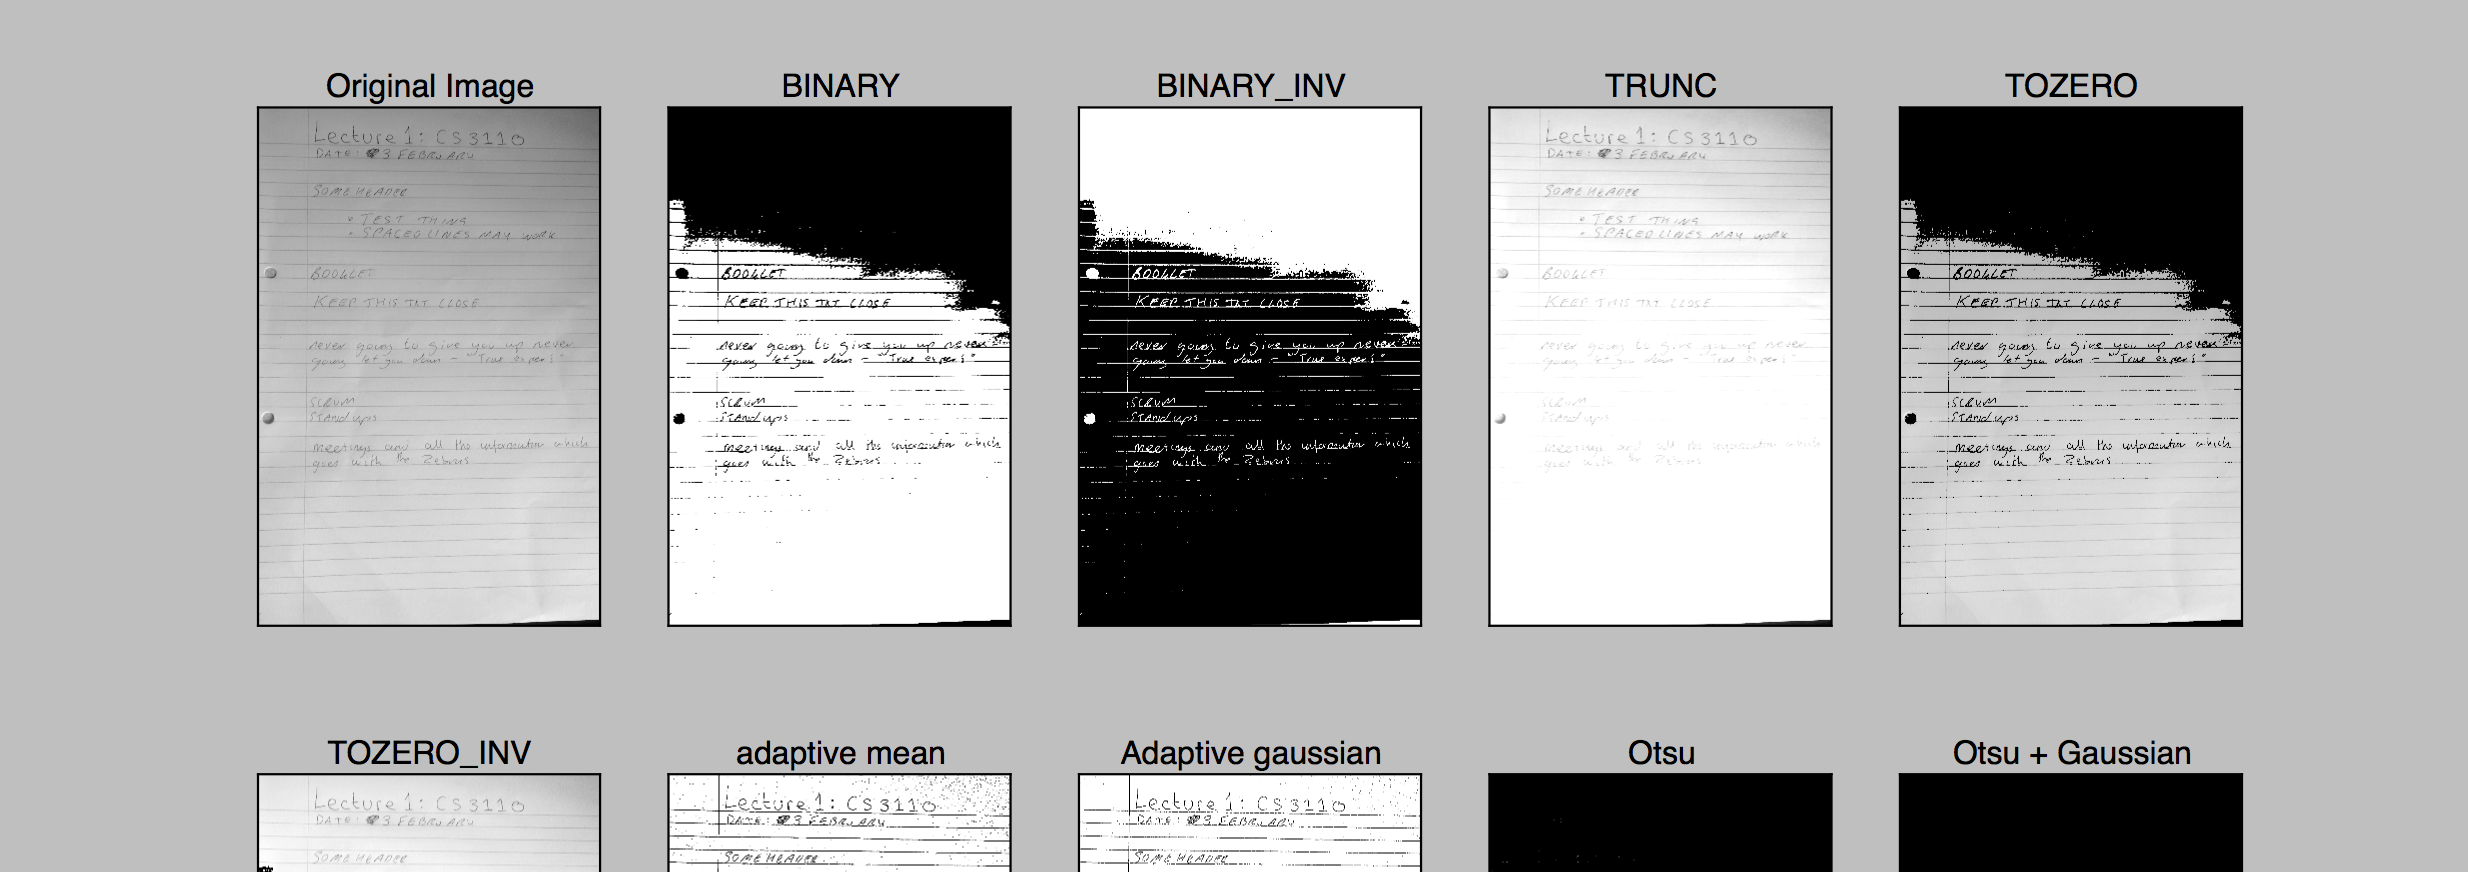 Original Image
BINARY
BINARY_INV
TRUNC
TOZERO
Lecture 1: CS 3110
DATE: 3 FEBRUARY
SOME HEADER
• TEST THING
• SPACED LINES MAY WORK
BOOKLET
KEEP THIS TXT CLOSE
never going to give you up never
going let you down - "True
SCRUM
Stand ups
meetings and all the information which
goes with the Zebras
BOOKLET
KEEP THIS TXT CLOSE
never going to give you up never
going let you down - "True
SCRUM
Stand ups
meetings and all the information which
goes with the Zebras
BOOKLET
KEEP THIS TXT CLOSE
never going to give you up never
going let you down - "True
SCRUM
Stand ups
meetings and all the information which
goes with the Zebras
Lecture 1: CS 3110
DATE: 3 FEBRUARY
SOME HEADER
• TEST THING
• SPACED LINES MAY WORK
BOOKLET
KEEP THIS TXT CLOSE
never going to give you up never
going let you down - "True
SCRUM
Stand ups
meetings and all the information which
goes with the Zebras
BOOKLET
KEEP THIS TXT CLOSE
never going to give you up never
going let you down - "True
SCRUM
Stand ups
meetings and all the information which
goes with the Zebras
TOZERO_INV
adaptive mean
Adaptive gaussian
Otsu
Otsu + Gaussian
Lecture 1: CS 3110
DATE: 3 FEBRUARY
SOME HEADER
Lecture 1: CS 3110
DATE: 3 FEBRUARY
SOME HEADER
Lecture 1: CS 3110
DATE: 3 FEBRUARY
SOME HEADER